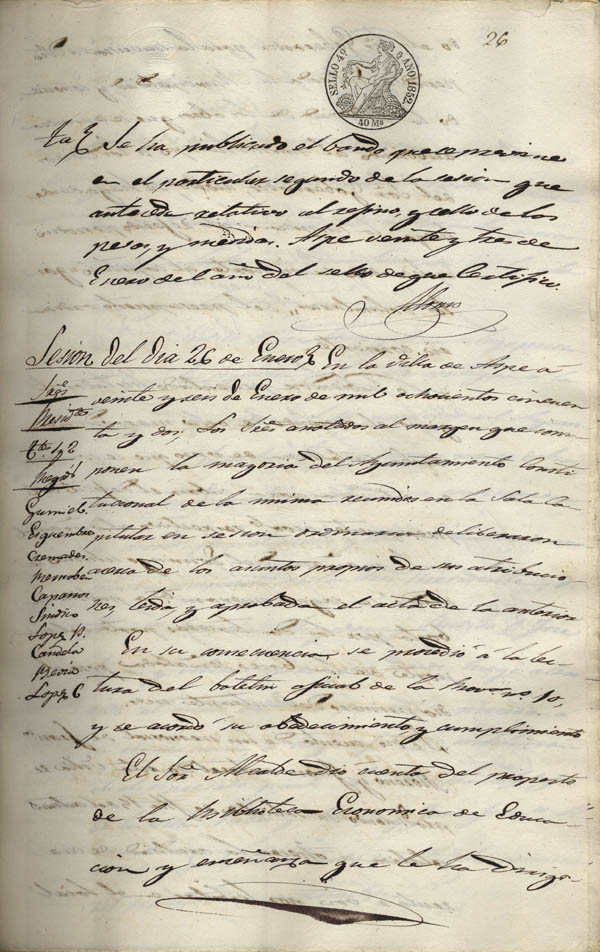 26
SELLO 4º AÑO 1852.
40 Ms
Se ha publicado el bando que se previene
en el particular segundo de la sesion que
antecede relativo al refino, y sello de las
pesas, y medidas. Aspe veinte y tres de
Enero del año del sello de que Certifico.
Alonso
Sesion del dia 26 de Enero En la Villa de Aspe á
Sres
veinte y seis de Enero de mil ochocientos cincuen
ta y dos, Los Sres anotados al margen que com
ponen la mayoria del Ayuntamiento Consti
Regs
tucional de la misma reunidos en la Sala Ca
Gumiel
pitular en sesion ordinaria deliberaron
Esquembre
Cremades
acerca de los asuntos propios de sus atribucio
Mernobeu
Cananos
nes, leida, y aprobada el acta de la anterior
Sindico
Lopez P.
En su consecuencia se procedió á la lec
Cañela
Bevia
tura del boletin oficial de la Prova no. 10,
Lopez C
y se acordó su obedecimiento y cumplimiento
El Sor Alcalde dió cuenta del prospecto
de la Biblioteca Economica de Educa
cion y enseñanza que le ha dirigi